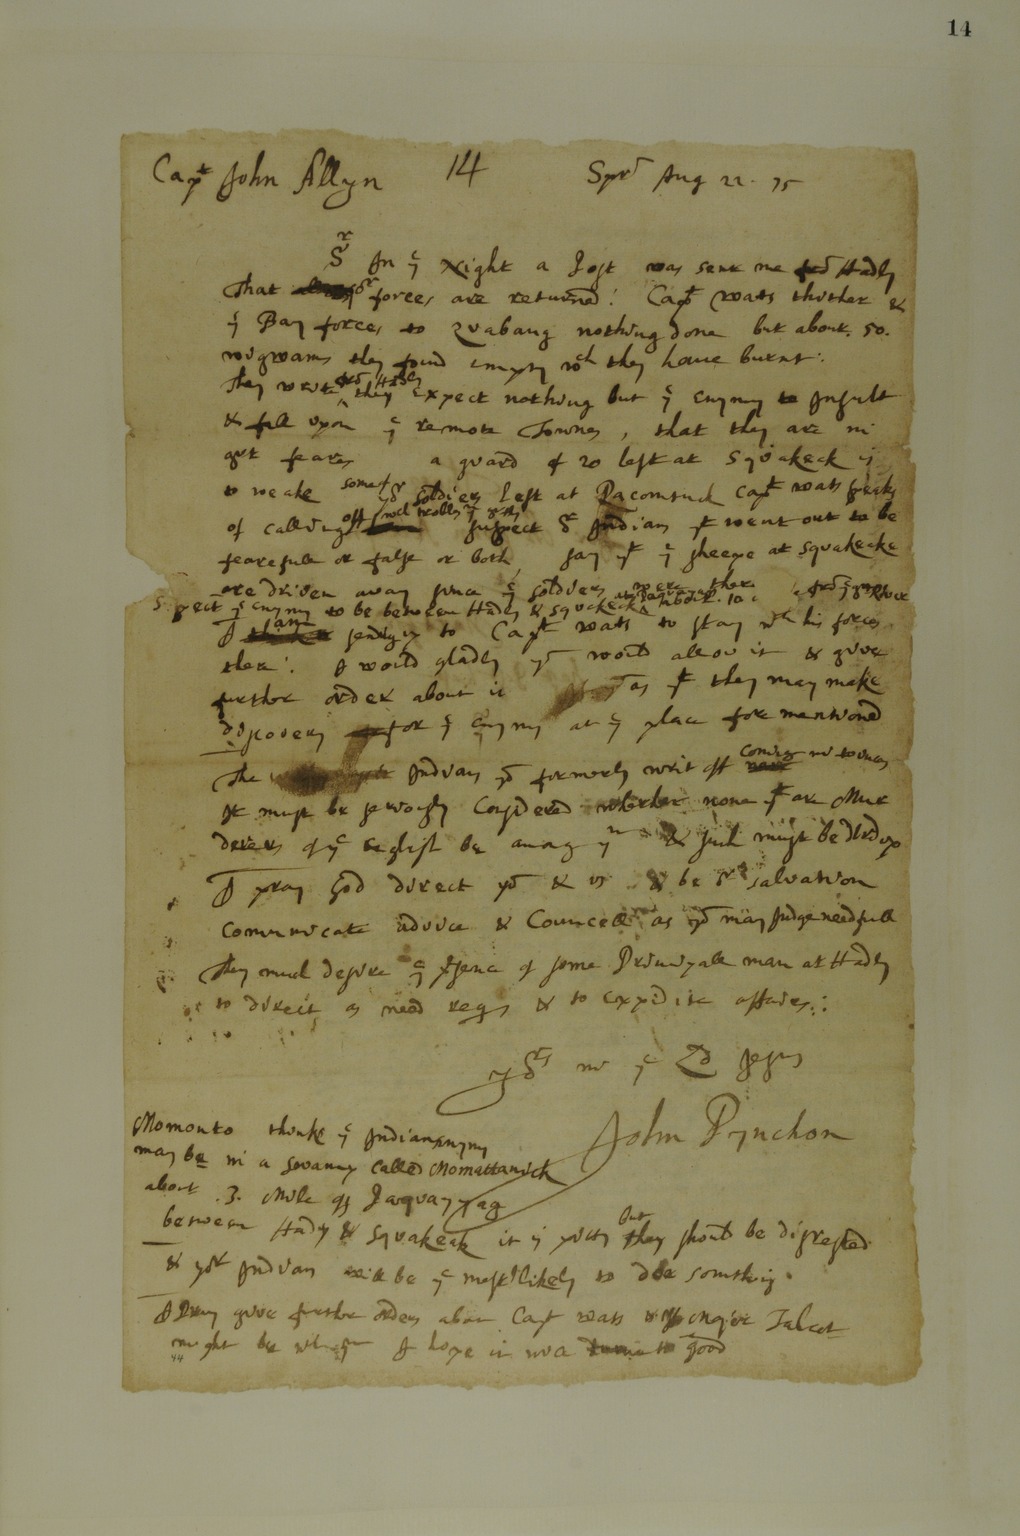 14
Capt John Allyn 14 Sprd Aug 22. 75
Sr In ye Night a Post was sent me fro Hadly
That or forces are returned: Capt Wats thither &
ye Bay forces to Quabaug nothing done but about. 50.
wigwams they found empty wch they have burnt:
They write fro Hadly they expect nothing but ye enymy to Insult
& fall upon ye remote Townes, that they are in
grt feares a guard of 20 left at Squakeak is
to weake some of yor soldiers left at Pacomtuck Capt Wats speaks
of calling off suspect or Indians yt went out to be
fearefull or false or both, say yt ye sheepe at Squakeake
are driven away since ye soldiers were there
Suspect ye enymy to be between Hadly & Squakeak about. 10
I am sending to Capt Wats to stay wth his forces
there: I would gladly yo would allow it & give
further order about it as yt they may make
discovery for ye enymy at ye place fore mentioned
The Indians yo formerly writ off coming in to uncas
It must be seriously Considered whether none yt are Mur
derers of ye English be among ym & such must be dld up
I pray God direct yo & us & be or salvation
Comunicate advice & Councell as yo may judge needfull
They much desire ye psence of some Principall man at Hadly
to direct as need reqs & to expedite affaires:
yors in ye Ld Jesus
John Pynchon
Momonto thinks ye Indian enymy
may be in a sowamp called Momattanick
about .3. Mile off Paquayyag
between Hadly & Squakeak it is pitty but they should be disrested
& yor Indians will be ye most likely to doe something.
I Pray give further orders about Capt Wats Major Talcot
might be I hope it wod good